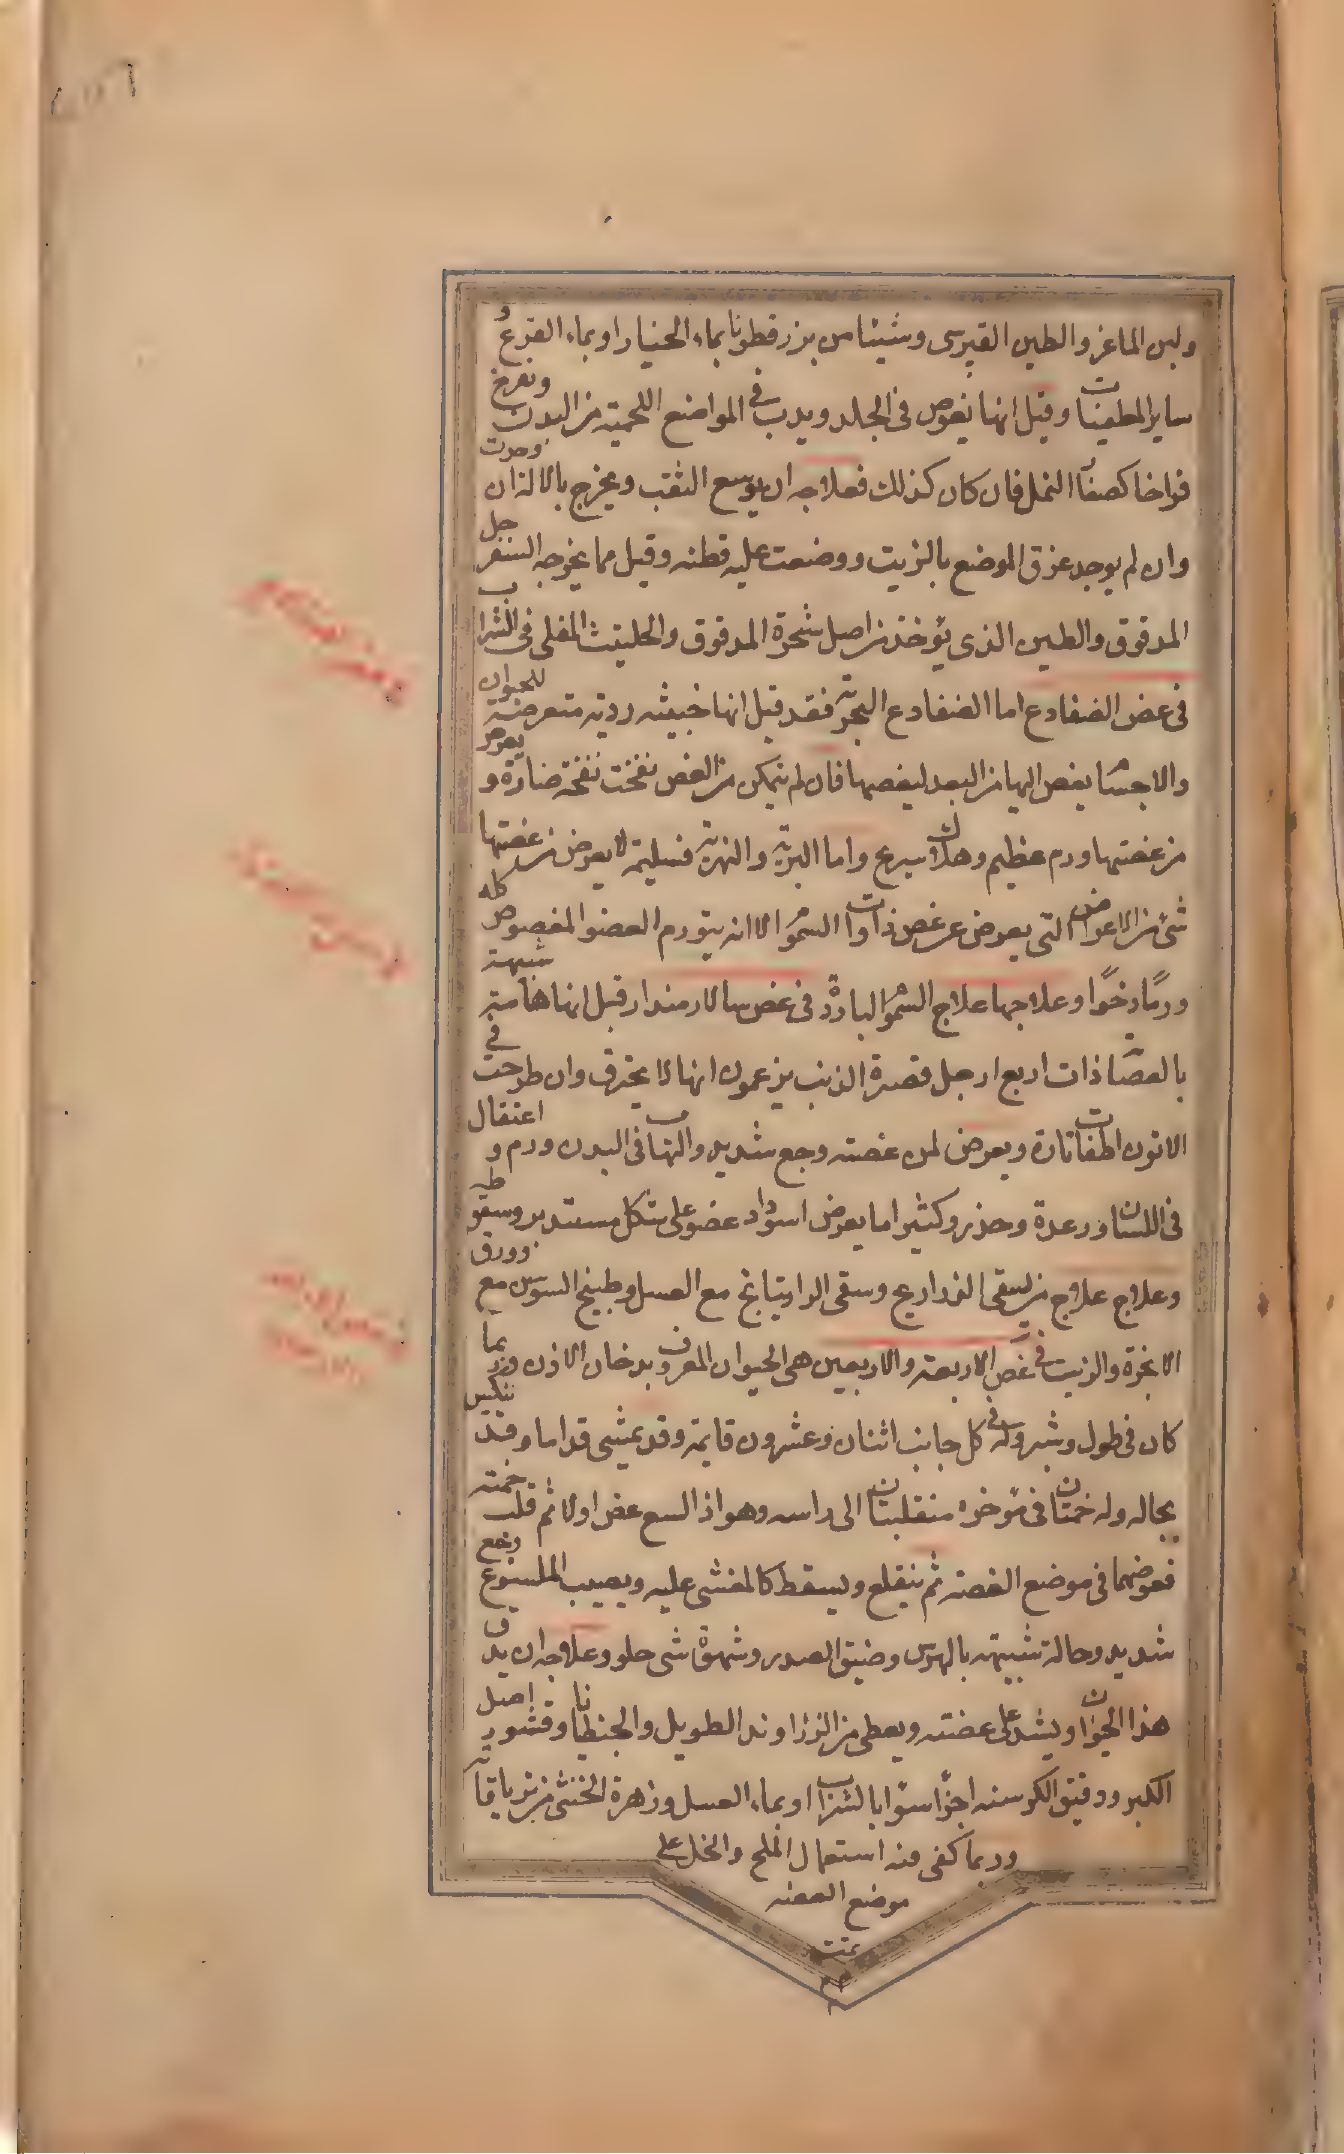 ولبن الماعز والطين القبرسى وشيئا من بزر قطونا بماء الخيار او بماء القرع و
ساير المطفيات وقيل انها تغوص فى الجلد ويدب فى المواضع اللحمية من البدن وتفرخ
فراخا كصغار النمل فان كان كذلك فعلاجه ان يوسع الثقب ويخرج بالالة ان وجدت
وان لم يوجد عرق الموضع بالزيت ووضعت عليه قطنه وقيل مما يخرجه السفرجل
المدقوق والطين الذى يؤخذ من اصل شجرة المدقوق والحلتيت المغلى فى الشراب
فى عض الضفادع اما الضفادع البحرية فقد قيل انها خبيثه ردية متعرضة للحيوان
والاجسام يعض اليها من البعد ليعضها فان لم يتمكن من العض نفخت نفخة ضارة و يعرض
من عضتها ورم عظيم وهلاك سريع واما البرية والنهرية فسليمة لا يعرض من عضتها
شئ من الاعراض التى يعرض عن عض ذوات السموم الا انه يتورم العضو المعضوض كله
ورمًا رخوًا وعلاجها علاج السموم الباردة فى عض سالامندار قيل انها هامة شبيهة
بالعضاة ذات اربع ارجل قصيرة الذنب يزعمون انها لا يحترق وان طرحت فى
الاتون اطفات ناره ويعرض لمن عضته وجع شديد والتهاب فى البدن ورم و اعتقال
فى اللسان ورعدة وخدر وكثيرا ما يعرض اسوداد عضو على شكل مستدير وسقوطه
وعلاج علاج من يسقى الذراريح وسقى الراتيانج مع العسل وطبيخ السوسن مع وورق
الانجرة والزيت فى عض الاربعة والاربعين هى الحيوان المعروف بدخال الاذن وربما
كان فى طول وشبر وله فى كل جانب اثنان وعشرون قايمة وقد يمشى قداما وقد ينكس
بحاله وله حمتان فى مؤخره منقلبتان الى راسه وهو اذا لسع عض اولا ثم قلب حمته
فعوضهما فى موضع العضه ثم ينقلع ويسقط كالمغشى عليه ويصيب الملسوع وجع
شديد وحالة شبيهة بالهوس وضيق الصدر وشهوة شى حلو وعلاجه ان يدق
هذا الحيوان ويشد على عضته ويعطى من الزراوند الطويل والجنطيانا وقشور اصل
الكبر ودقيق الكرسنه اجزا سوا بالشراب او بماء العسل وزهرة الخنثى من ترياقاته
وربما كفى منه استعمال الملح والخل على
موضع العضه
تمت
م